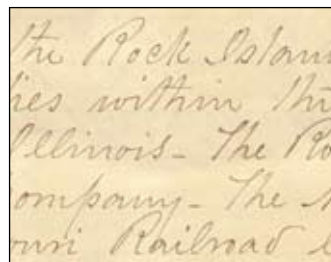 the Rock Islan
lies within th
Illinois - The Ro
ompany - The
ouri Railroad